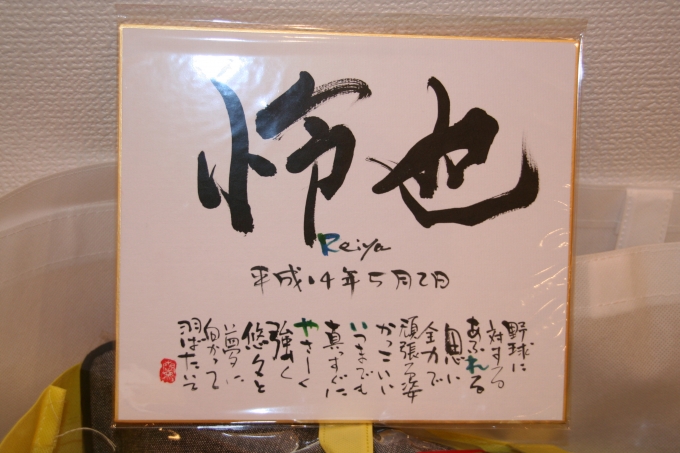 怜也
Reiya
平成14年5月2日
野球に
対する
あふれる
思いに
全力で
頑張る姿
かっこいい
いつまでも
真っすぐに
やさしく
強く
悠々と
夢に
向かって
羽ばたいて